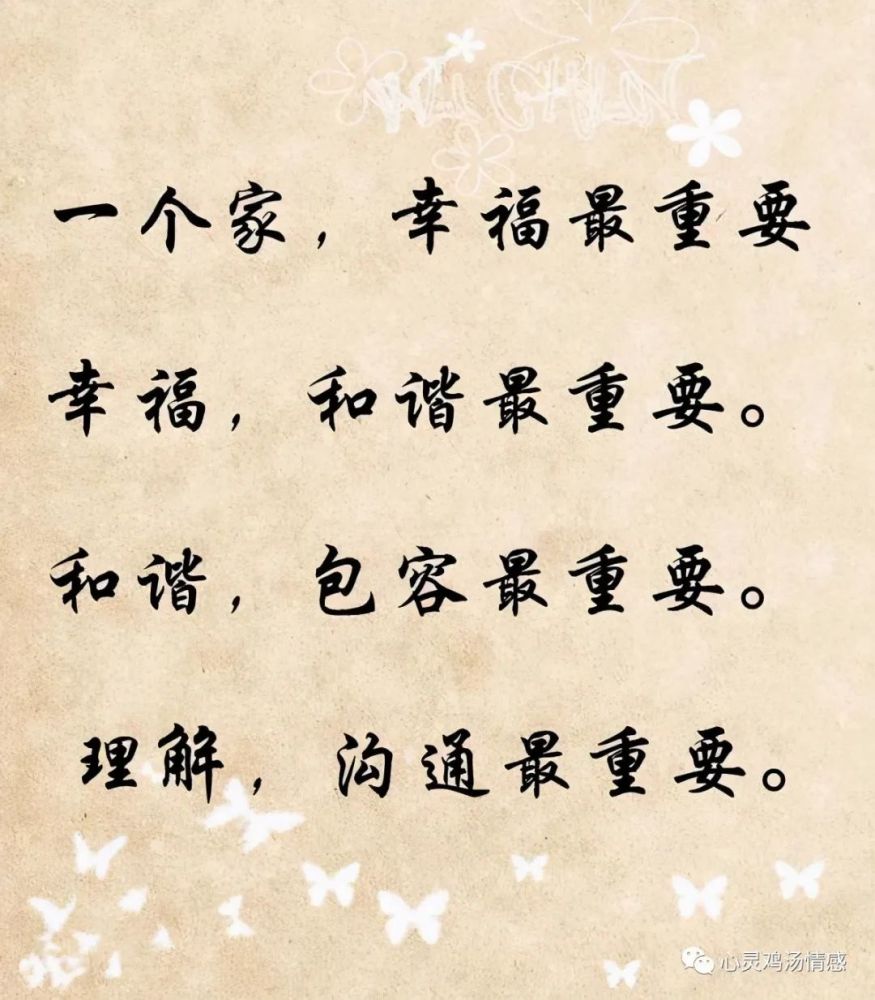 一个家，幸福最重要
幸福，和谐最重要。
和谐，包容最重要。
理解，沟通最重要。
心灵鸡汤情感